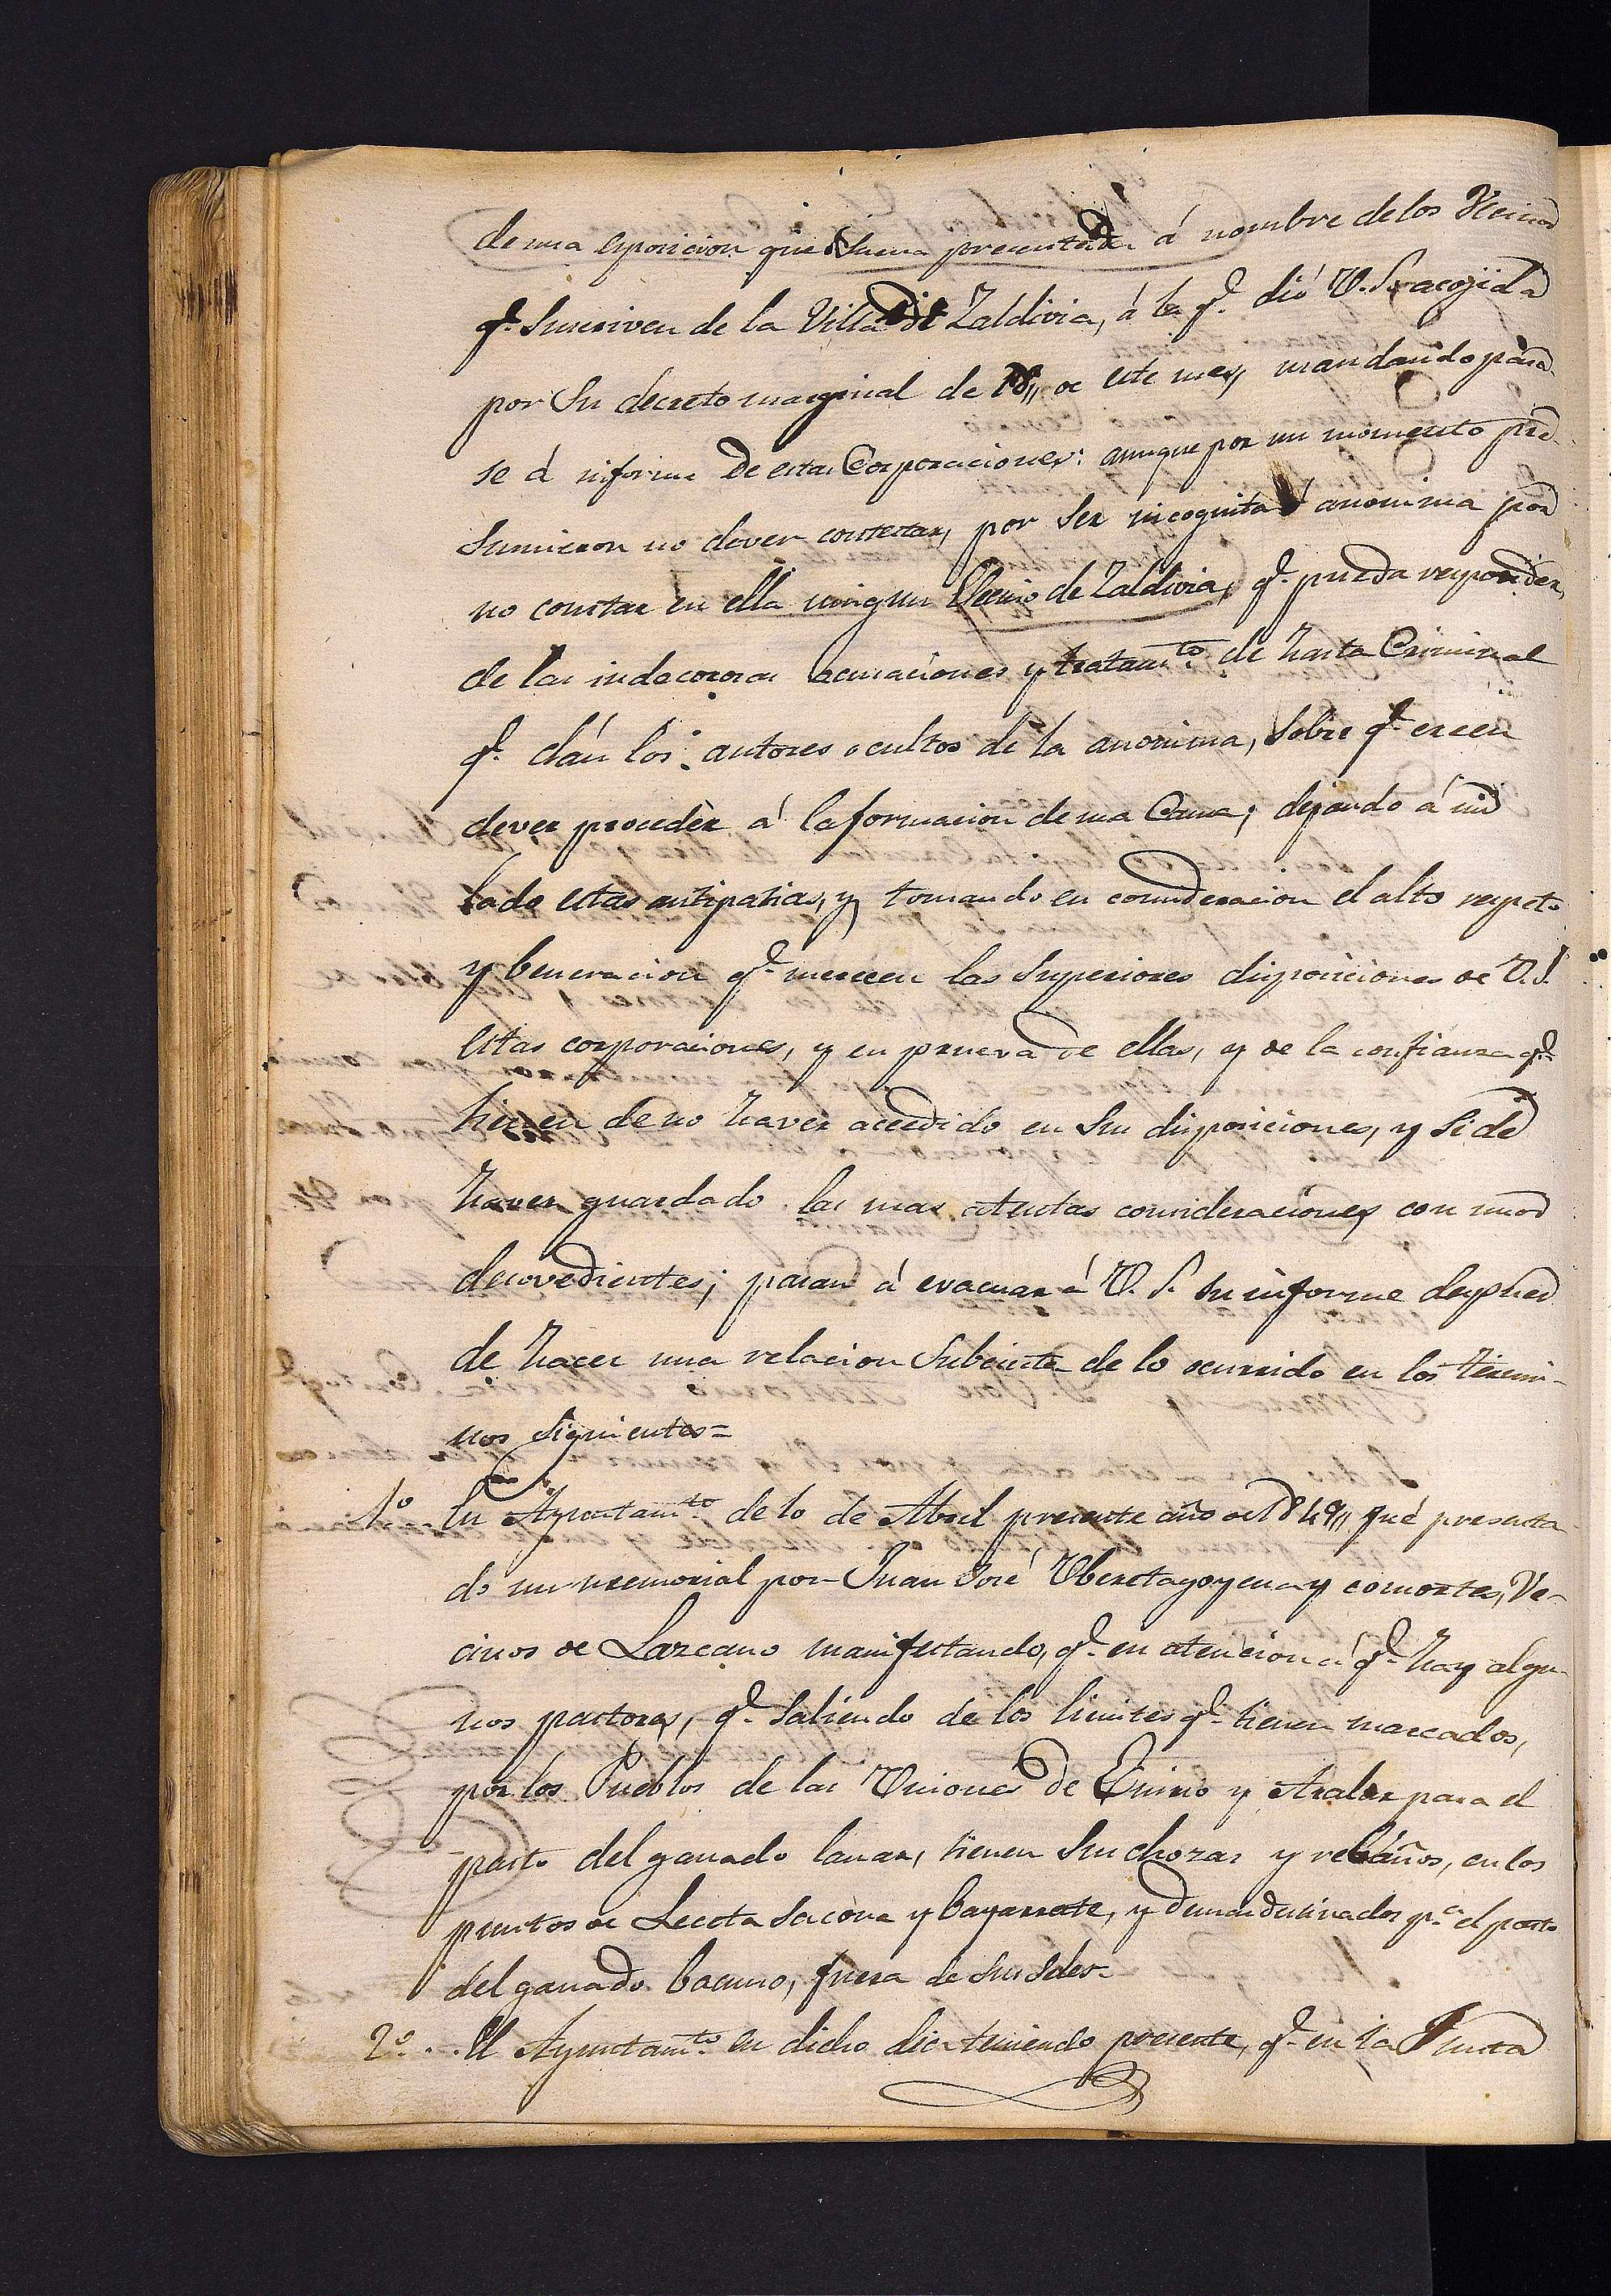 de una exposicion que suena presentada á nombre de los Vecinos
q.e suscriven de la Villa de Zaldivia, á la q.e dió V.S. acojida
por su decreto marginal de 18,, de este mes, mandando pasa-
se á informe de estas Corporaciones: aunque por un momento pre-
sumieron no dever contestar, por ser incognita ó anonima por
no constar en ella ningun Vecino de Zaldivia, q.e pueda responder,
de las indecorosas acusaciones y tratam.to de hasta Criminal
q.e dán los autores ocultos de la anonima, sobre q.e creen
dever procedér á la formacion de una Causa; dejando á un
lado estas antipatias, y tomando en consideracion el alto respeto
y beneracion q.e merecen las Superiores disposiciones de V.S.
estas corporaciones, y en prueva de ellas, y de la confianza q.e
tienen de no haver accedido en sus disposiciones, y si de
haver guardado las mas atentas consideraciones con unos
desovedientes; pasan á evacuar á V.S. su informe despues
de hacer una relacion subcinta de lo ocurrido en los termi-
nos siguientes=
1.o En Ayuntam.to de 10 de Abril presente año de 1849,, fué presenta-
do un memorial por Juan José Yberetagoyena y consortes, Ve-
cinos de Lazcano manifestando, q.e en atencion á q.e hay algu-
nos pastores, q.e saliendo de los limites q.e tienen marcados,
por los Pueblos de las Uniones de Enirio y Aralar para el
pasto del ganado lanar, tienen sus chozas y rebáños, en los
puntos de Leceta Sacona y bayarrate, y demas destinados p.a el pasto
del ganado bacuno, fuera de sus seles.
2.o El Ayuntam.to en dicho dia teniendo presente, q.e en la Junta